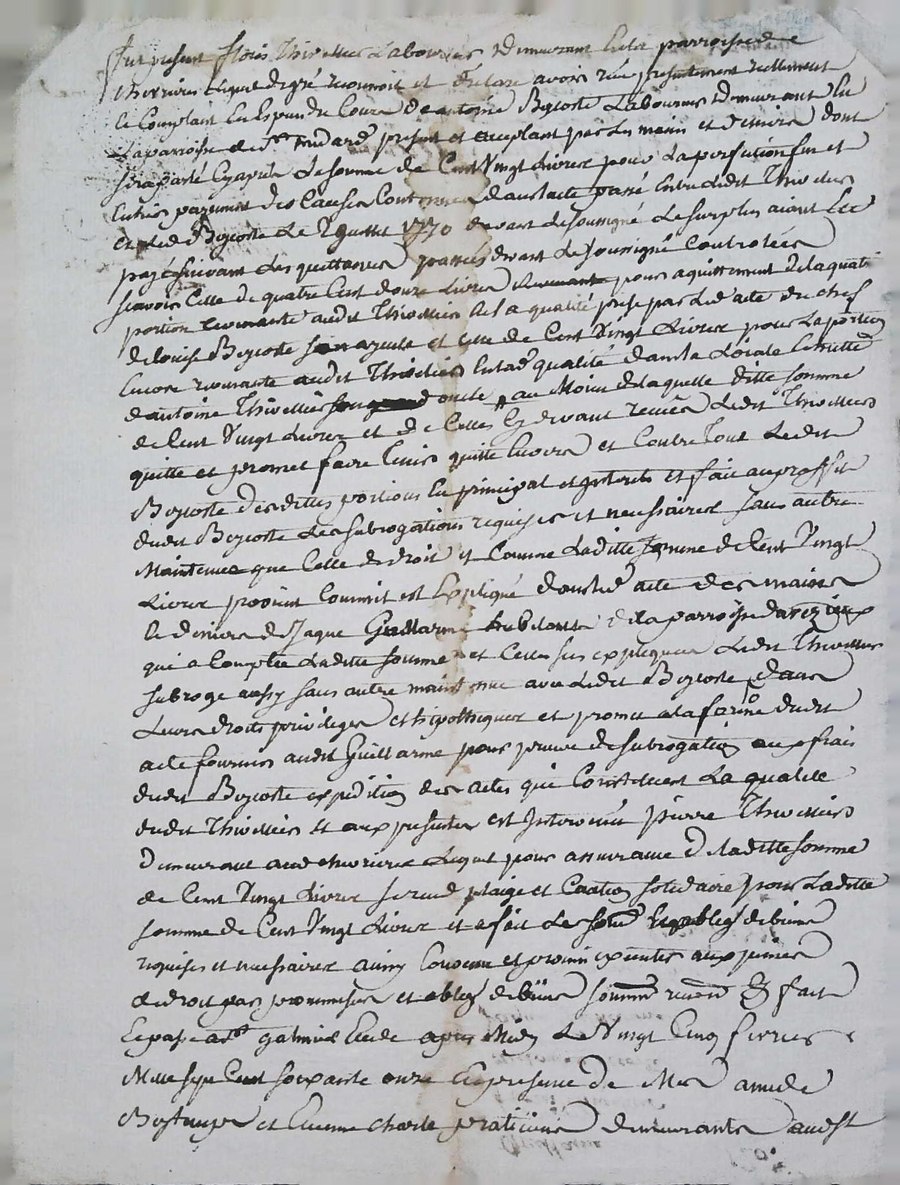 fut present floris Thivellier Laboureur demeurant en la parroisse de
chevrieres lequel de gré reconnoit et declare avoir reçu presentement reellement
et comptant en Espece de Cours de antoine Bycoste Laboureur demeurant en
La parroisse de St medard present et acceptant par les mains et deniers dont
sera parlé cy après La somme de Cent Vingt Livres pour La perfection fin et
Entier payement des Causes Contenues dans lacte passé entre Ledit Thivellier
et Led Bycoste Le 2 Juillet 1770 devant Le soussigné Le surplus aiant été
payé suivant Les quittances passées devant Le soussigné Controlées
scavoir Celle de quatre Cent douze Livres pour aquittement de la
portion revenante audit Thivellier en la qualité prise par Led acte du chef
de Louise Bycoste son ayeule et Celle de Cent Vingt Livres pour La portion
Encore revenante audit Thivellier en lad qualité dans la
dantoine Thivellier son oncle, au Moien de laquelle ditte somme
de Cent Vingt Livres et de Celles cy devant reçues Ledit Thivellier
quitte et promet faire tenir quitte Envers et Contre Tous Ledit
Bycoste desdittes portions En principal et interets et fait au proffit
dudit Bycoste Les subrogations requises et necessaires sans autre
Maintenue que Celle de droit et Comme Laditte somme de Cent Vingt
Livres provient Comme il est Expliqué dans led acte des mains
et deniers de Jaque Guillarme de la parroisse
qui a Comptée Laditte somme et Celles sus expliquées Ledit Thivellier
subroge aussy sans autre maintenue avec Ledit Bycoste dans
Leurs droits privileges et hipotheques et promet a la forme dudit
acte fournir audit Guillarme pour preuve de subrogation aux frais
dudit Bycoste expedition des actes qui Constituent La qualité
dudit Thivellier Et aux presentes est Intervenu pierre Thivellier
demeurant aud chevrieres Lequel pour assurance de laditte somme
de Cent Vingt Livres se rend plaige et Caution solidaire pour Laditte
somme de Cent Vingt Livres et a fait Les oblig de biens
requises et necessaires ainsy Convenu et promis executer aux peines
de droit par promesses et oblig de biens soumn renon & fait
Et passé a St galmier Etude après Midy Le Vingt Cinq fevrier
Mille sept Cent soixante onze En presence de Mes amable
et Etienne Charle praticiens demeurants audit St